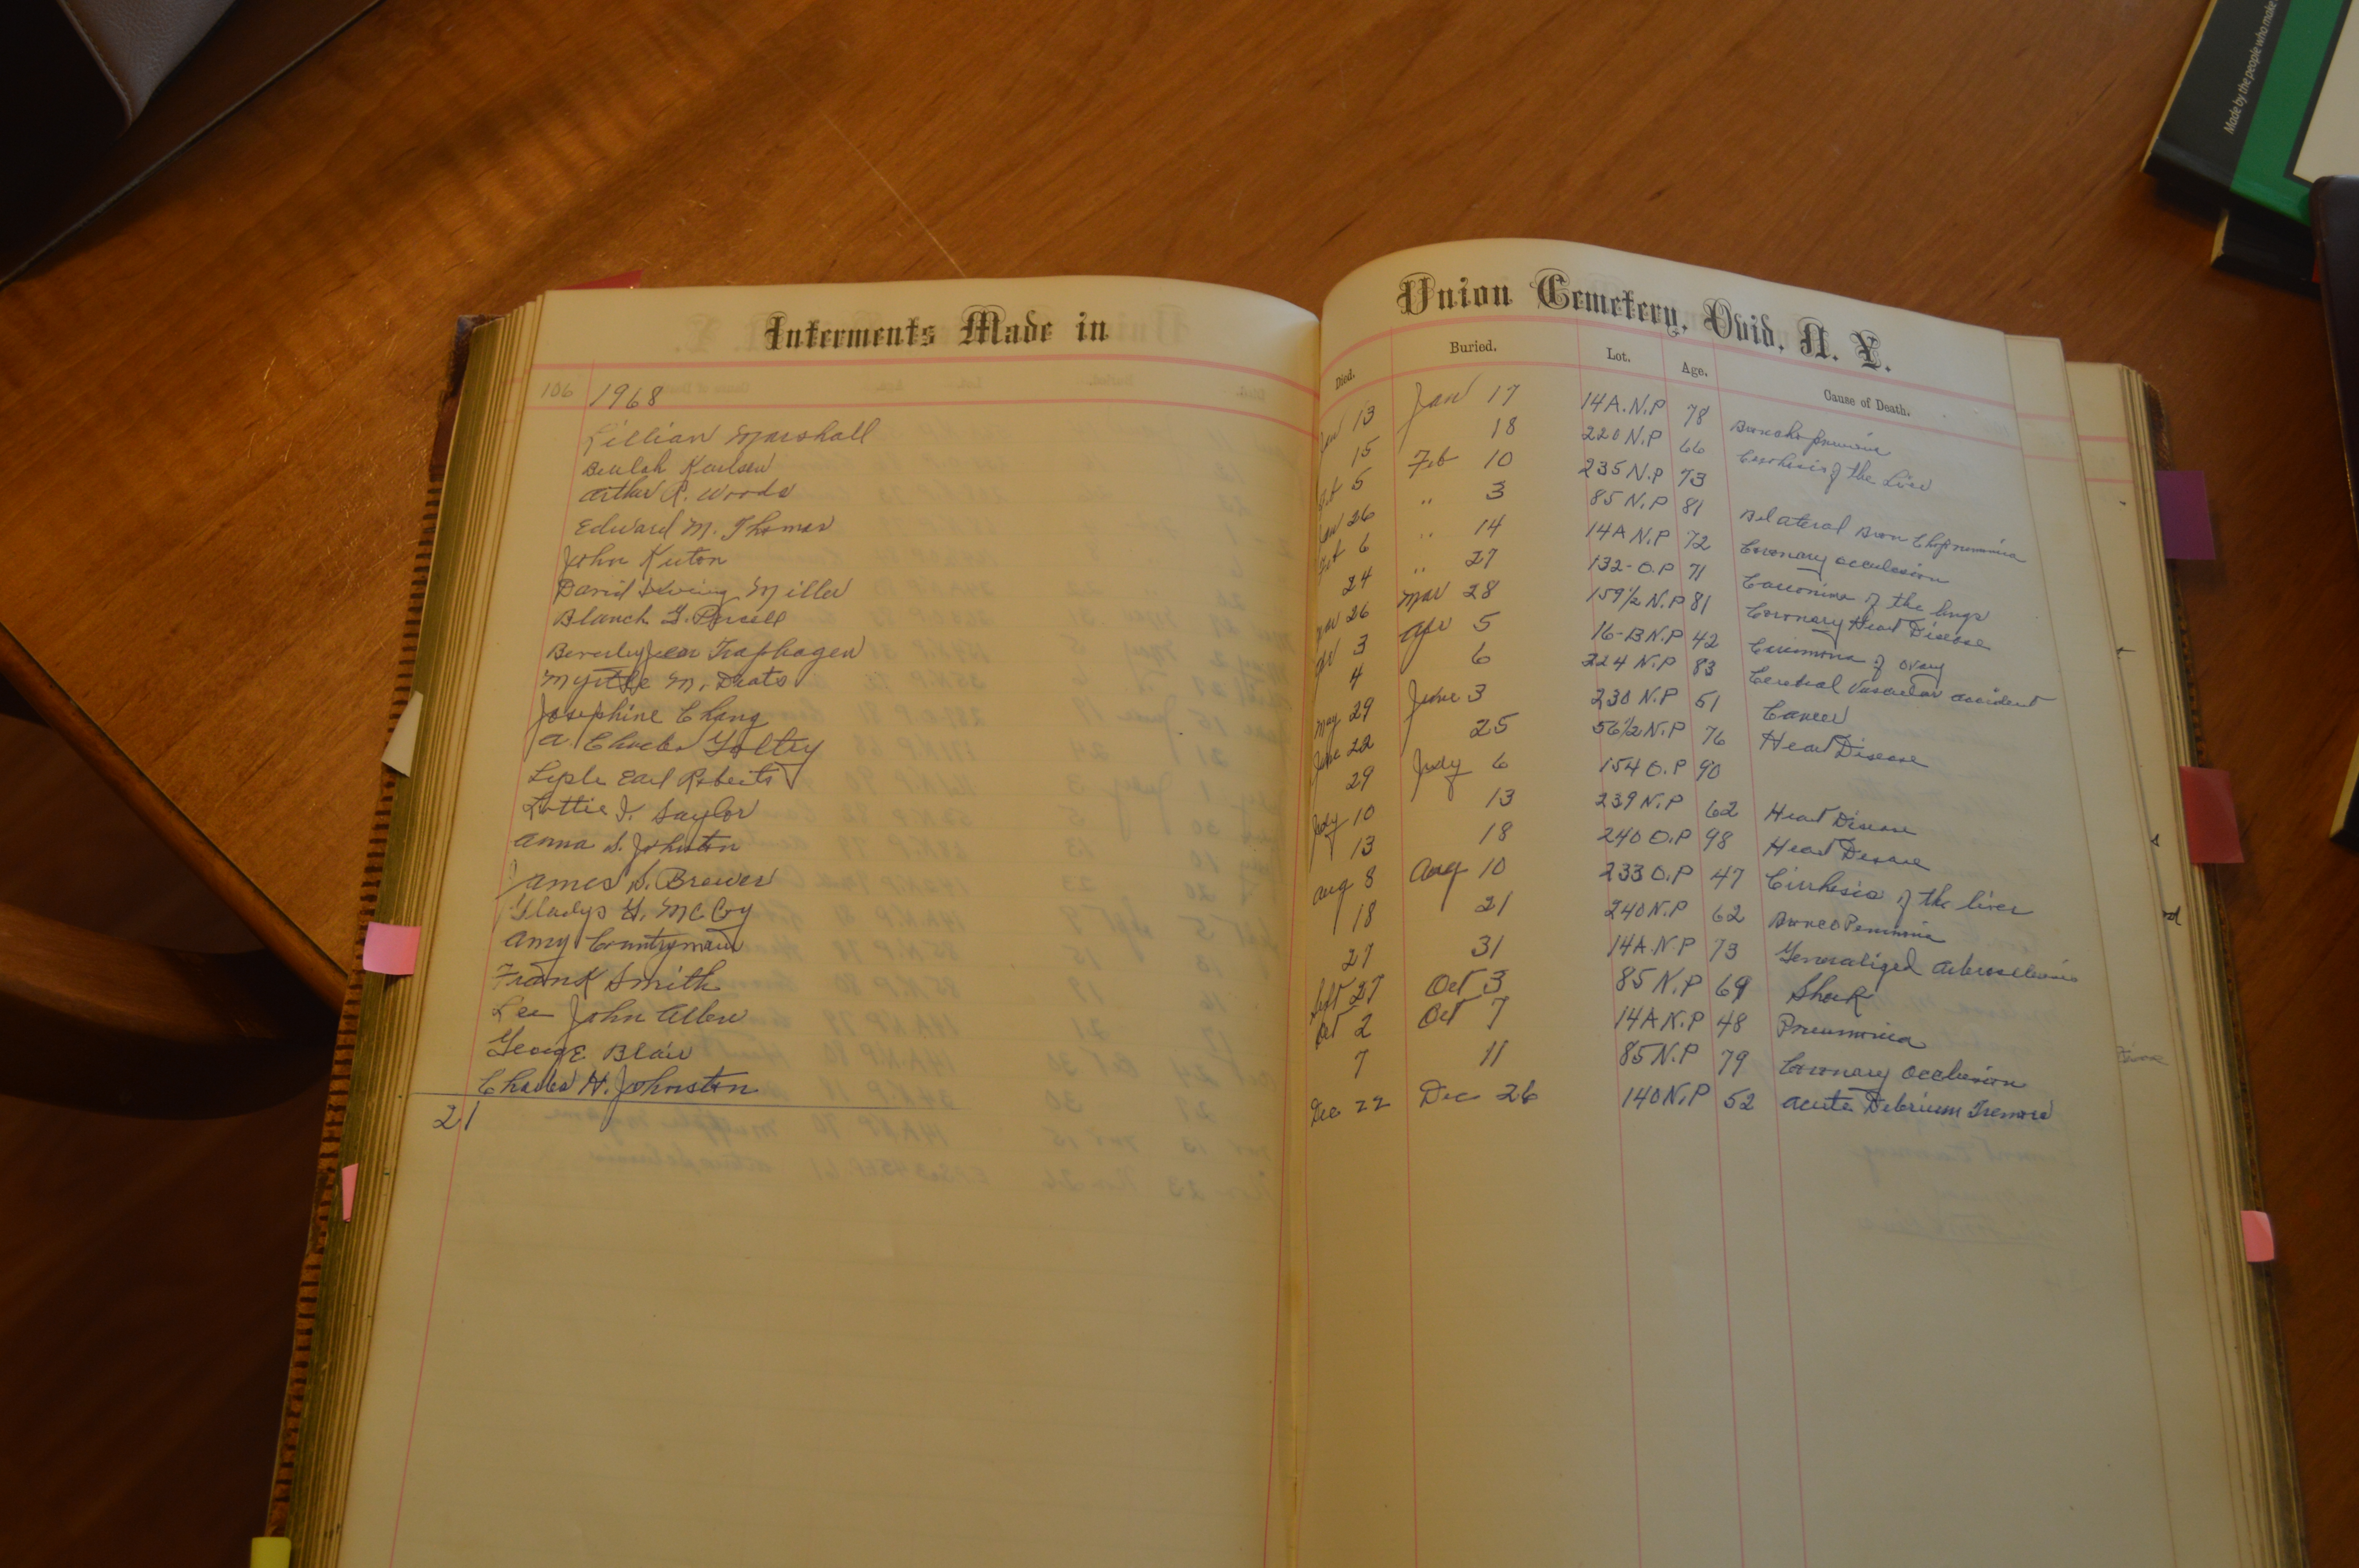 Made by the people who make
Interments Made in
Union Cemetery, Ovid, N. Y.
Died. Buried. Lot. Age. Cause of Death.
106 1968
Lillian Marshall Jan 13 Jan 17 14A.N.P 78
Beulah Karlsen 15 18 220 N.P 66 of the Liver
Arthur R. Woods 5 Feb 10 235 N.P 73
Edward M. Thomas Jan 26 " 3 85 N.P 81 Bilateral
John Kuton 6 " 14 14A N.P 72 Coronary occulesion
David Irving Miller 24 " 27 132-O.P 71 of the lungs
Blanch G. Mar 26 Mar 28 159½ N.P 81 Coronary Heart Disease
Beverly Jean Traphagen Apr 3 Apr 5 16-B N.P 42 of ovary
Myrtle M. Deats 4 6 224 N.P 83 Cerebral Vascular accident
Josephine Chang May 29 June 3 230 N.P 51 Cancer
A. Charles June 22 25 56½ N.P 76 Heart Disease
Lysle Earl Roberts 29 July 6 154 O.P 90
Lottie I. Saylor July 10 13 239 N.P 62 Heart Disease
Anna S. Johnston 13 18 240 O.P 98 Heart
James S. Brewer Aug 8 Aug 10 233 O.P 47 Cirrhesis of the liver
Gladys Y. McCoy 18 21 240 N.P 62
Amy Countryman 27 31 14A N.P 73 Generalized
Frank Smith Sept 27 Oct 3 85 N.P 69
Lee John Allen Oct 2 Oct 7 14A N.P 48 Pneumonia
George Blair 7 11 85 N.P 79 Coronary Occlusion
Charles H. Johnston Dec 22 Dec 26 140 N.P 52 Acute
21